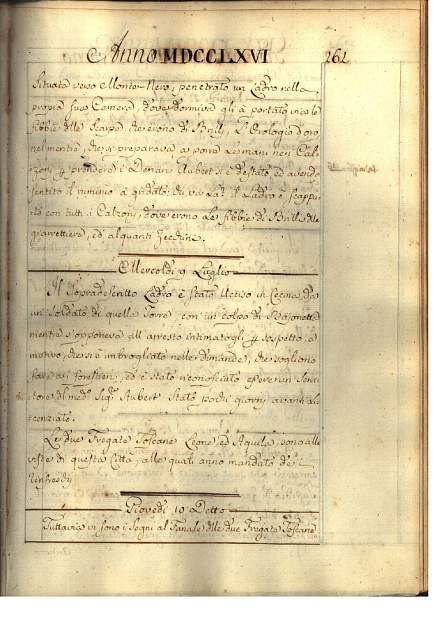 Anno MDCCLXVI 261
Situata verso Monte Nero, penetrato un Ladro nella
propria sua Camera, dove dormiva gli à portato via le
fibbie dlle Scarpe che erono di Brill, L'Orologio d'oro
nel mentre, che si preparava a porre Le mani nei Cal
zoni p prendere i Denari Aubert si è destato, ed avendo
sentito il rumine à gridato: chi va La? il Ladro è scappa
to con tutti i Calzoni, dove erono Le fibbie di Brill dlle
giarrettiere, ed alquanti Zecchini.
Mercoldì 9 Luglio
Il Sopradescritto Ladro è stato Ucciso in Cecina, da
un Soldato di quella Torre con un colpo di Bajonetta
mentre s'opponeva all'arresto intimatogli p sospetto, a
motivo, che si è imbrogliato nelle domande, che vogliono
fare ai forestieri, ed è stato riconosciuto essere un Servi
tore di med Sigr Aubert Stato pochi giorni avanti li
cenziato.
Le due Fregate Toscane Leone, ed Aquila, sono alle
viste di questa Città, alle quali anno mandato de
rinfreschi
Giovedì 10 Detto
Tuttavia vi sono i Segni al Fanale dlle due Fregate Toscane